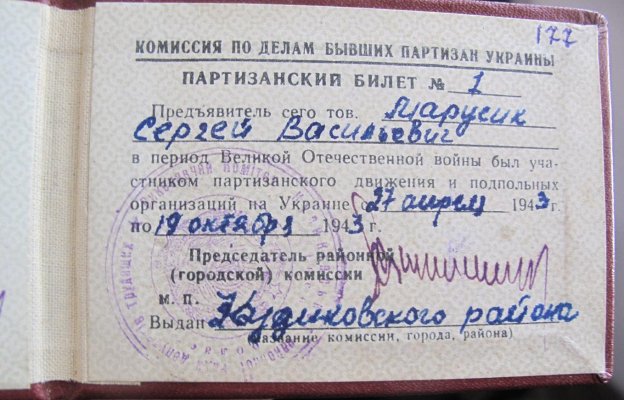 177
КОМИССИЯ ПО ДЕЛАМ БЫВШИХ ПАРТИЗАН УКРАИНЫ
ПАРТИЗАНСКИЙ БИЛЕТ № 1
Предъявитель сего тов. Марусик
Сергей Васильевич
в период Великой Отечественной войны был уча-
стником партизанского движения и подпольных
организаций на Украине с 27 апреля 1943 г.
по 19 октября 1943 г.
Председатель районной
(городской) комиссии
М. П.
Выдан района
(название комиссии, города, района)